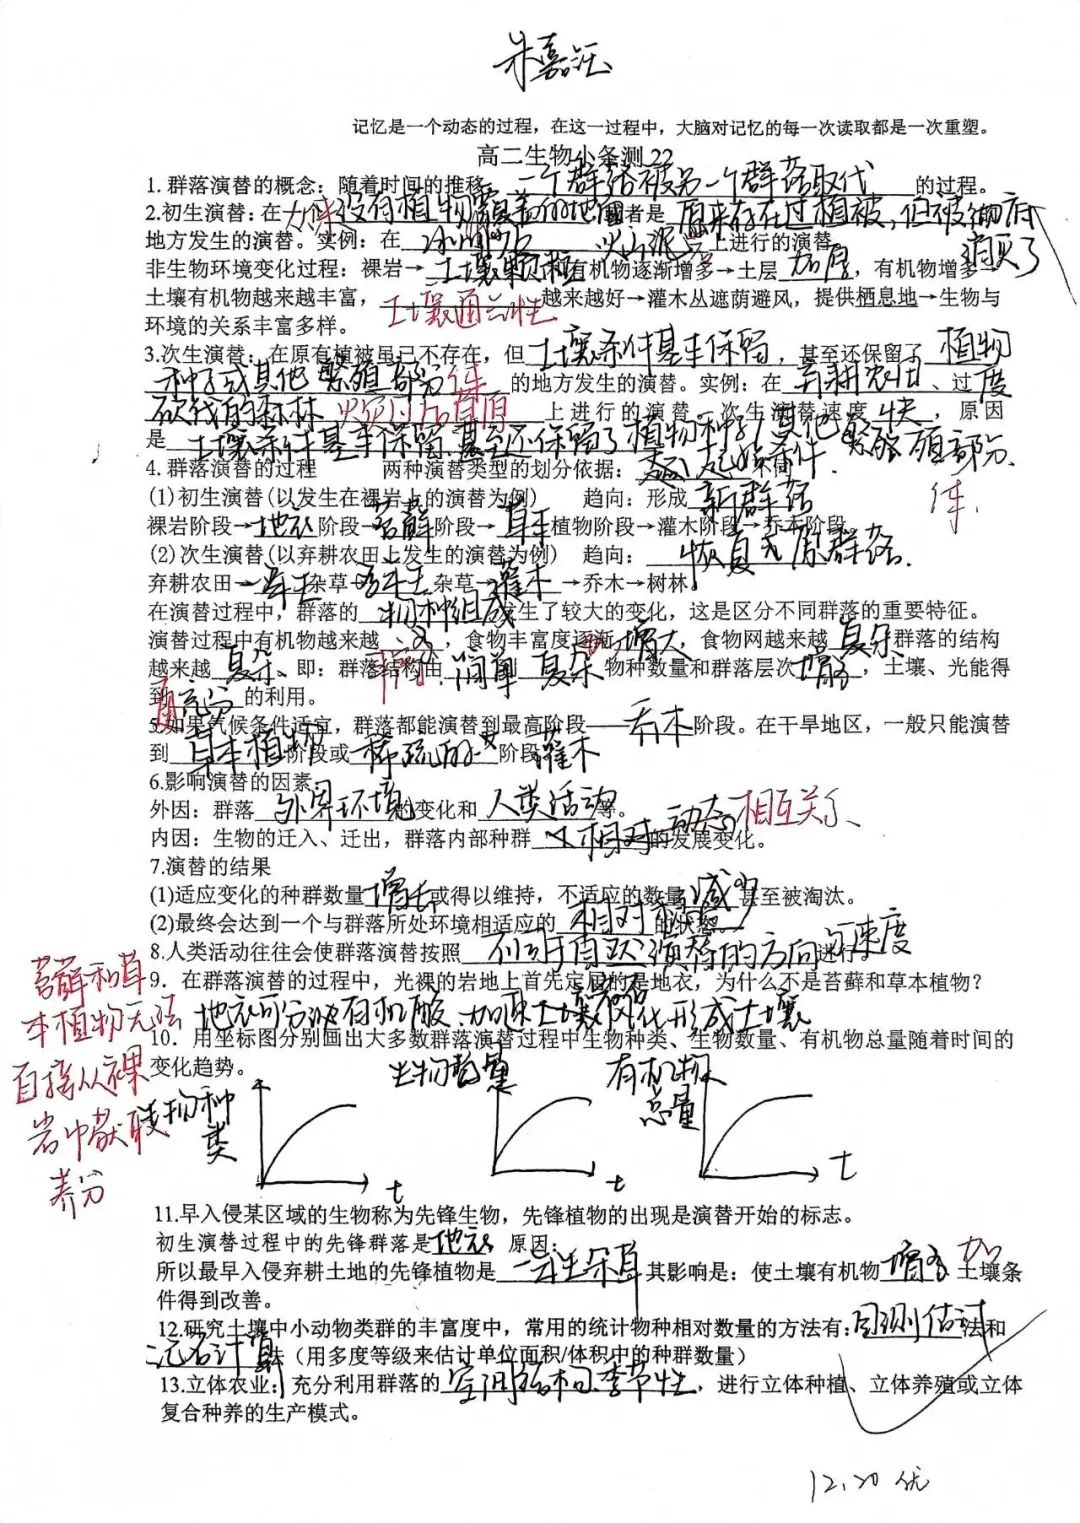 朱嘉
记忆是一个动态的过程，在这一过程中，大脑对记忆的每一次读取都是一次重塑。
高二生物小条测 22
1. 群落演替的概念：随着时间的推移，一个群落被另一个群落取代的过程。
2.初生演替：在 从来没有植物覆盖的地面 或者是 原来存在过植被，但被彻底消灭了
地方发生的演替。实例：在 冰川泥 火山泥 上进行的演替
非生物环境变化过程：裸岩→土壤颗粒 有机物逐渐增多→土层 加厚，有机物增多
土壤有机物越来越丰富，土壤通气性 越来越好→灌木丛遮荫避风，提供栖息地→生物与
环境的关系丰富多样。
3.次生演替：在原有植被虽已不存在，但 土壤条件基本保留，甚至还保留了 植物
种子或其他繁殖部分 体 的地方发生的演替。实例：在 弃耕农田、过度
砍伐的森林 火灾后的草原 上进行的演替。次生演替速度 快，原因
是 土壤条件基本保留，甚至还保留了植物种子/其他繁殖部分. 体.
4. 群落演替的过程 两种演替类型的划分依据：起始条件.
(1)初生演替(以发生在裸岩上的演替为例) 趋向：形成 新群落
裸岩阶段→地衣阶段→苔藓阶段→草本植物阶段→灌木阶段→乔木阶段
(2)次生演替(以弃耕农田上发生的演替为例) 趋向：恢复成原群落.
弃耕农田→一年生杂草→多年生杂草→灌木→乔木→树林。
在演替过程中，群落的 物种组成 发生了较大的变化，这是区分不同群落的重要特征。
演替过程中有机物越来越 多，食物丰富度逐渐 增大，食物网越来越 复杂 群落的结构
越来越 复杂、即：群落结构由 简单 复杂 物种数量和群落层次 增多，土壤、光能得
到 更充分 的利用。
5.如果气候条件适宜，群落都能演替到最高阶段——乔木阶段。在干旱地区，一般只能演替
到 草本植物 阶段或 稀疏的 阶段 灌木
6.影响演替的因素
外因：群落 外界环境 的变化和 人类活动 等。
内因：生物的迁入、迁出，群落内部种群 相对动态 相互关系 的发展变化。
7.演替的结果
(1)适应变化的种群数量 增长 或得以维持，不适应的数量 减少 甚至被淘汰。
(2)最终会达到一个与群落所处环境相适应的 相对稳定 的状态。
8.人类活动往往会使群落演替按照 不同于自然演替的方向与速度 进行。
9．在群落演替的过程中，光裸的岩地上首先定居的是地衣，为什么不是苔藓和草本植物？
地衣可分泌有机酸 加速土壤风化 形成土壤
苔藓和草
本植物无法
直接从裸
岩中获取
养分
10．用坐标图分别画出大多数群落演替过程中生物种类、生物数量、有机物总量随着时间的
变化趋势。
生物种类 t
生物数量 t
有机物总量 t
11.早入侵某区域的生物称为先锋生物，先锋植物的出现是演替开始的标志。
初生演替过程中的先锋群落是 地衣 原因：
所以最早入侵弃耕土地的先锋植物是 一年生杂草 其影响是：使土壤有机物 增多 加 土壤条
件得到改善。
12.研究土壤中小动物类群的丰富度中，常用的统计物种相对数量的方法有：目测估计法和
记名计算法（用多度等级来估计单位面积/体积中的种群数量）
13.立体农业：充分利用群落的 空间结构、季节性，进行立体种植、立体养殖或立体
复合种养的生产模式。
12.20 优